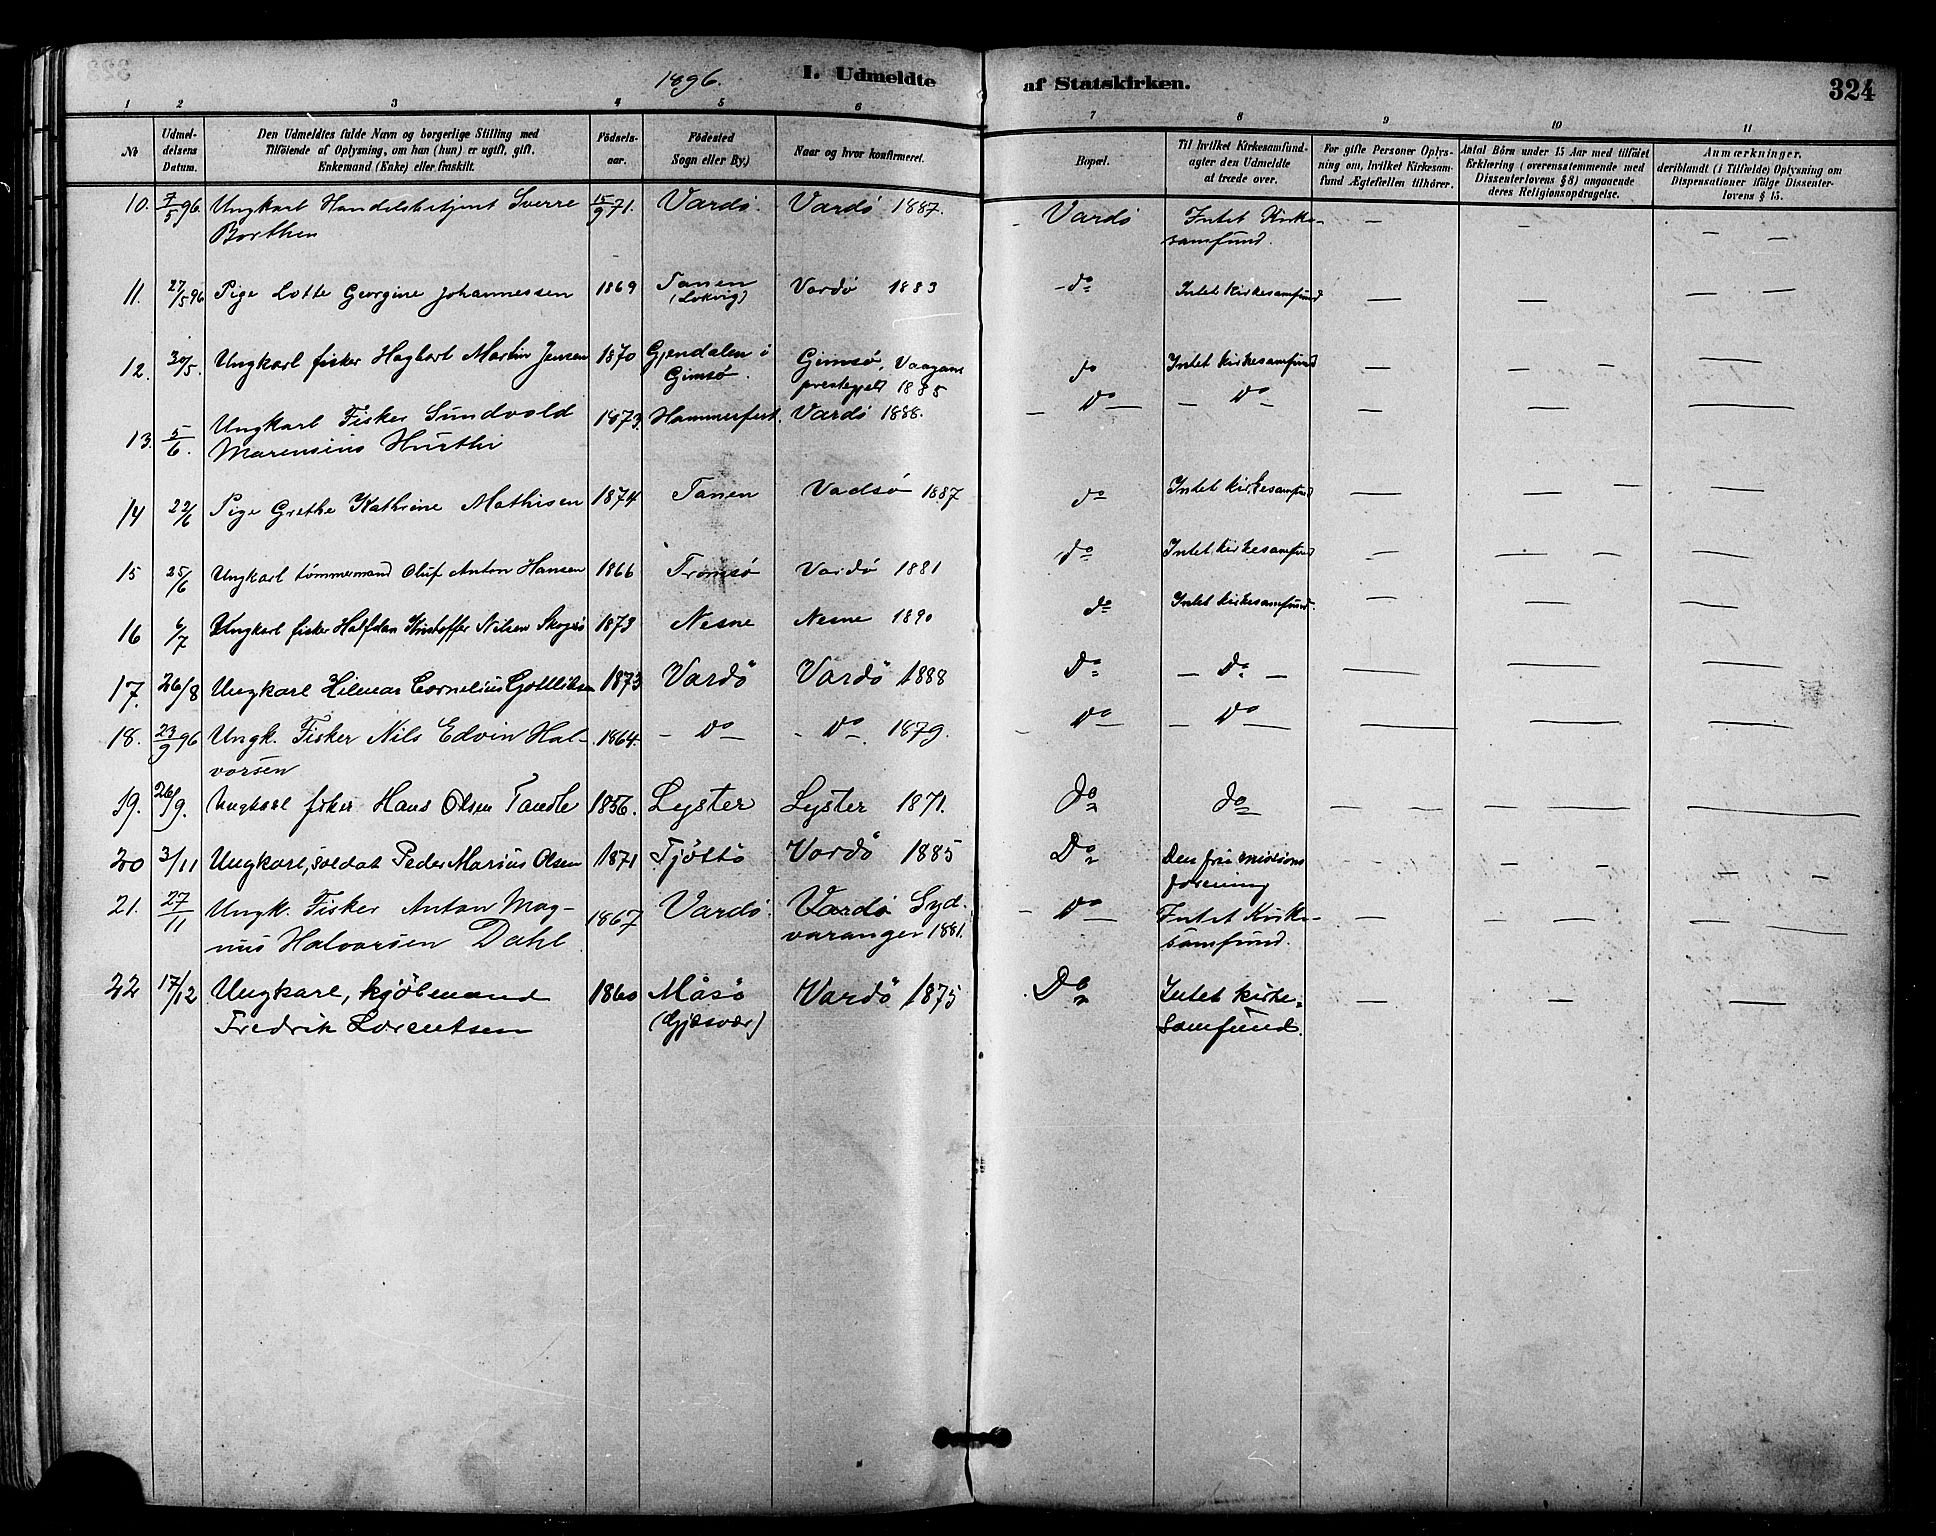 1896. I. Udmeldte af Statskirken. 324
1 2 3 4 5 6 7 8 9 10 11
No
Udmeldelsens Datum.
Den Udmeldtes fulde Navn og borgerlige Stilling med
Tilføiende af Oplysning, om han (hun) er ugift, gift.
Enkemand (Enke) eller fraskilt.
Fødsels-
aar.
Fødested
Sogn eller By.)
Naar og hvor konfirmeret.
Bopæl.
Til hvilket Kirkesamfund-
agter den Udmeldte
at træde over.
For gifte Personer Oplys-
ning om, hvilket Kirkesam-
fund Ægtefællen tilhører.
Antal Børn under 15 Aar med tilføiet
Erklæring (overensstemmende med
Dissenterlovens § 8) angaaende
deres Religionsopdragelse.
Anmærkninger,
deriblandt (i Tilfælde) Oplysning om
Dispensationer ifølge Dissenter-
lovens § 15.
10. 7/5 96. Ungkarl Handelsbetjent Sverre 15/9 71. Vardö Vardö 1887. Vardö Intet Kirke-
Borthen samfund.
11. 27/5 96 Pige Lotte Georgine Johannessen 1869 Tanen Vardø 1883 do Intet Kirkesamfund
12. 30/5. Ungkarl fisker Hagbart Martin Jensen 1870 Gjendalen i Gimsø, Vaagans do Intet kirkesamfund
Gimsø. prestegjeld 1885
13. 5/6. Ungkarl Fisker Sundvold 1873. Hammerfest. Vardö 1888. Do Do
Marensius
14 22/6 Pige Grethe Kathrine Mathisen 1874 Tanen Vadsø 1887 do Intet kirkesamfund
15 25/6 Ungkarl tømmermand Oluf Anton Hansen 1866 Tromsø Vardø 1881 do Intet kirkesamfund
16 6/7 Ungkarl fisker Halfdan Kristoffer Nilsen 1873 Nesne Nesne 1890 do Intet kirkesamfund.
17. 26/8 Ungkarl Hilmar Cornelius Gottliebsen 1873 Vardö Vardö 1888 Do Do
18. 23/9 96 Ungk. Fisker Nils Edvin Hal- 1864. Do Do 1879. Do Do
vorsen
19. 26/9. Ungkarl fisker Hans Olsen 1856. Lyster Lyster 1871. do do
20 3/11 Ungkarl, soldat Peder Marius Olsen 1871 Tjöttö Vardö 1885 Do Den frie missions
forening
21. 27/11 Ungk. Fisker Anton Mag- 1867 Vardö. Vardö Syd- Do Intet Kirke-
nus Halvorsen Dahl varanger 1881. samfund.
22 17/12 Ungkarl, kjøbmand 1860 Måsö Vardö 1875 Do Intet kirke-
Fredrik Lorentsen (Gjæsvær) Samfund.